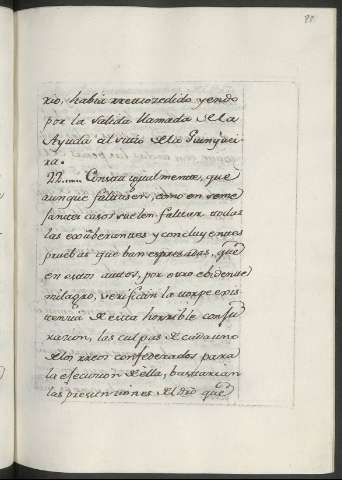 rio, havia rretrozedido yendo
por la salida llamada de la
Ayuda al sitio de la Quinquei
ra.
22...... Consta igualmente, que
aunque faltasen, como en seme
jantes casos suelen faltar todas
las exûberantes y concluyentes
pruebas que ban expresadas, que
en estos autos, por otro ebidente
milagro, verifican la torpe exis
tencia de esta horrible conju
racion, las culpas de cada uno
de los rreos confederados para
la ejecucion de ella, bastarian
las presunciones de dro que